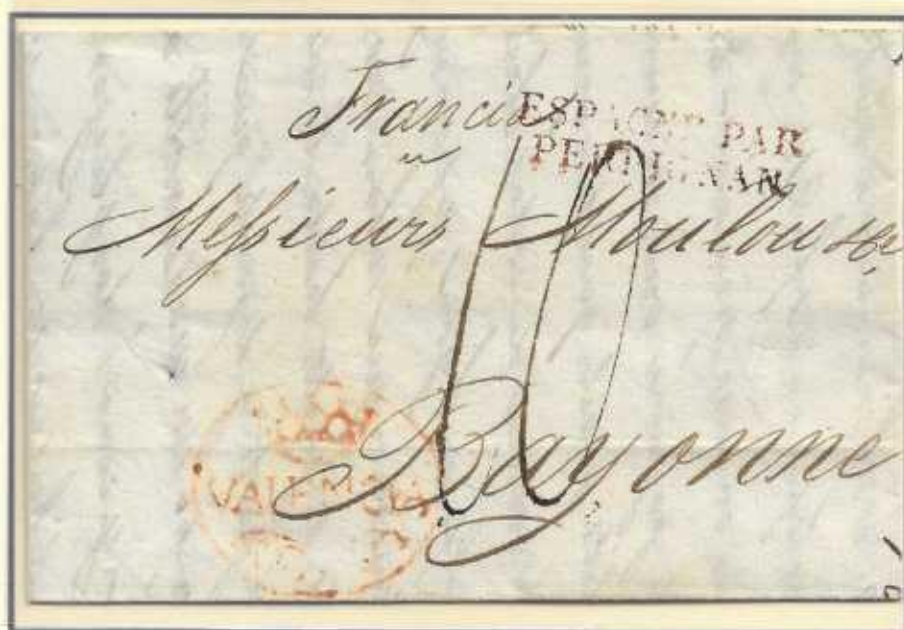 Francia
ESPAGNE PAR
PERPIGNAN
10
Messieurs
Bayonne
VALENCIA